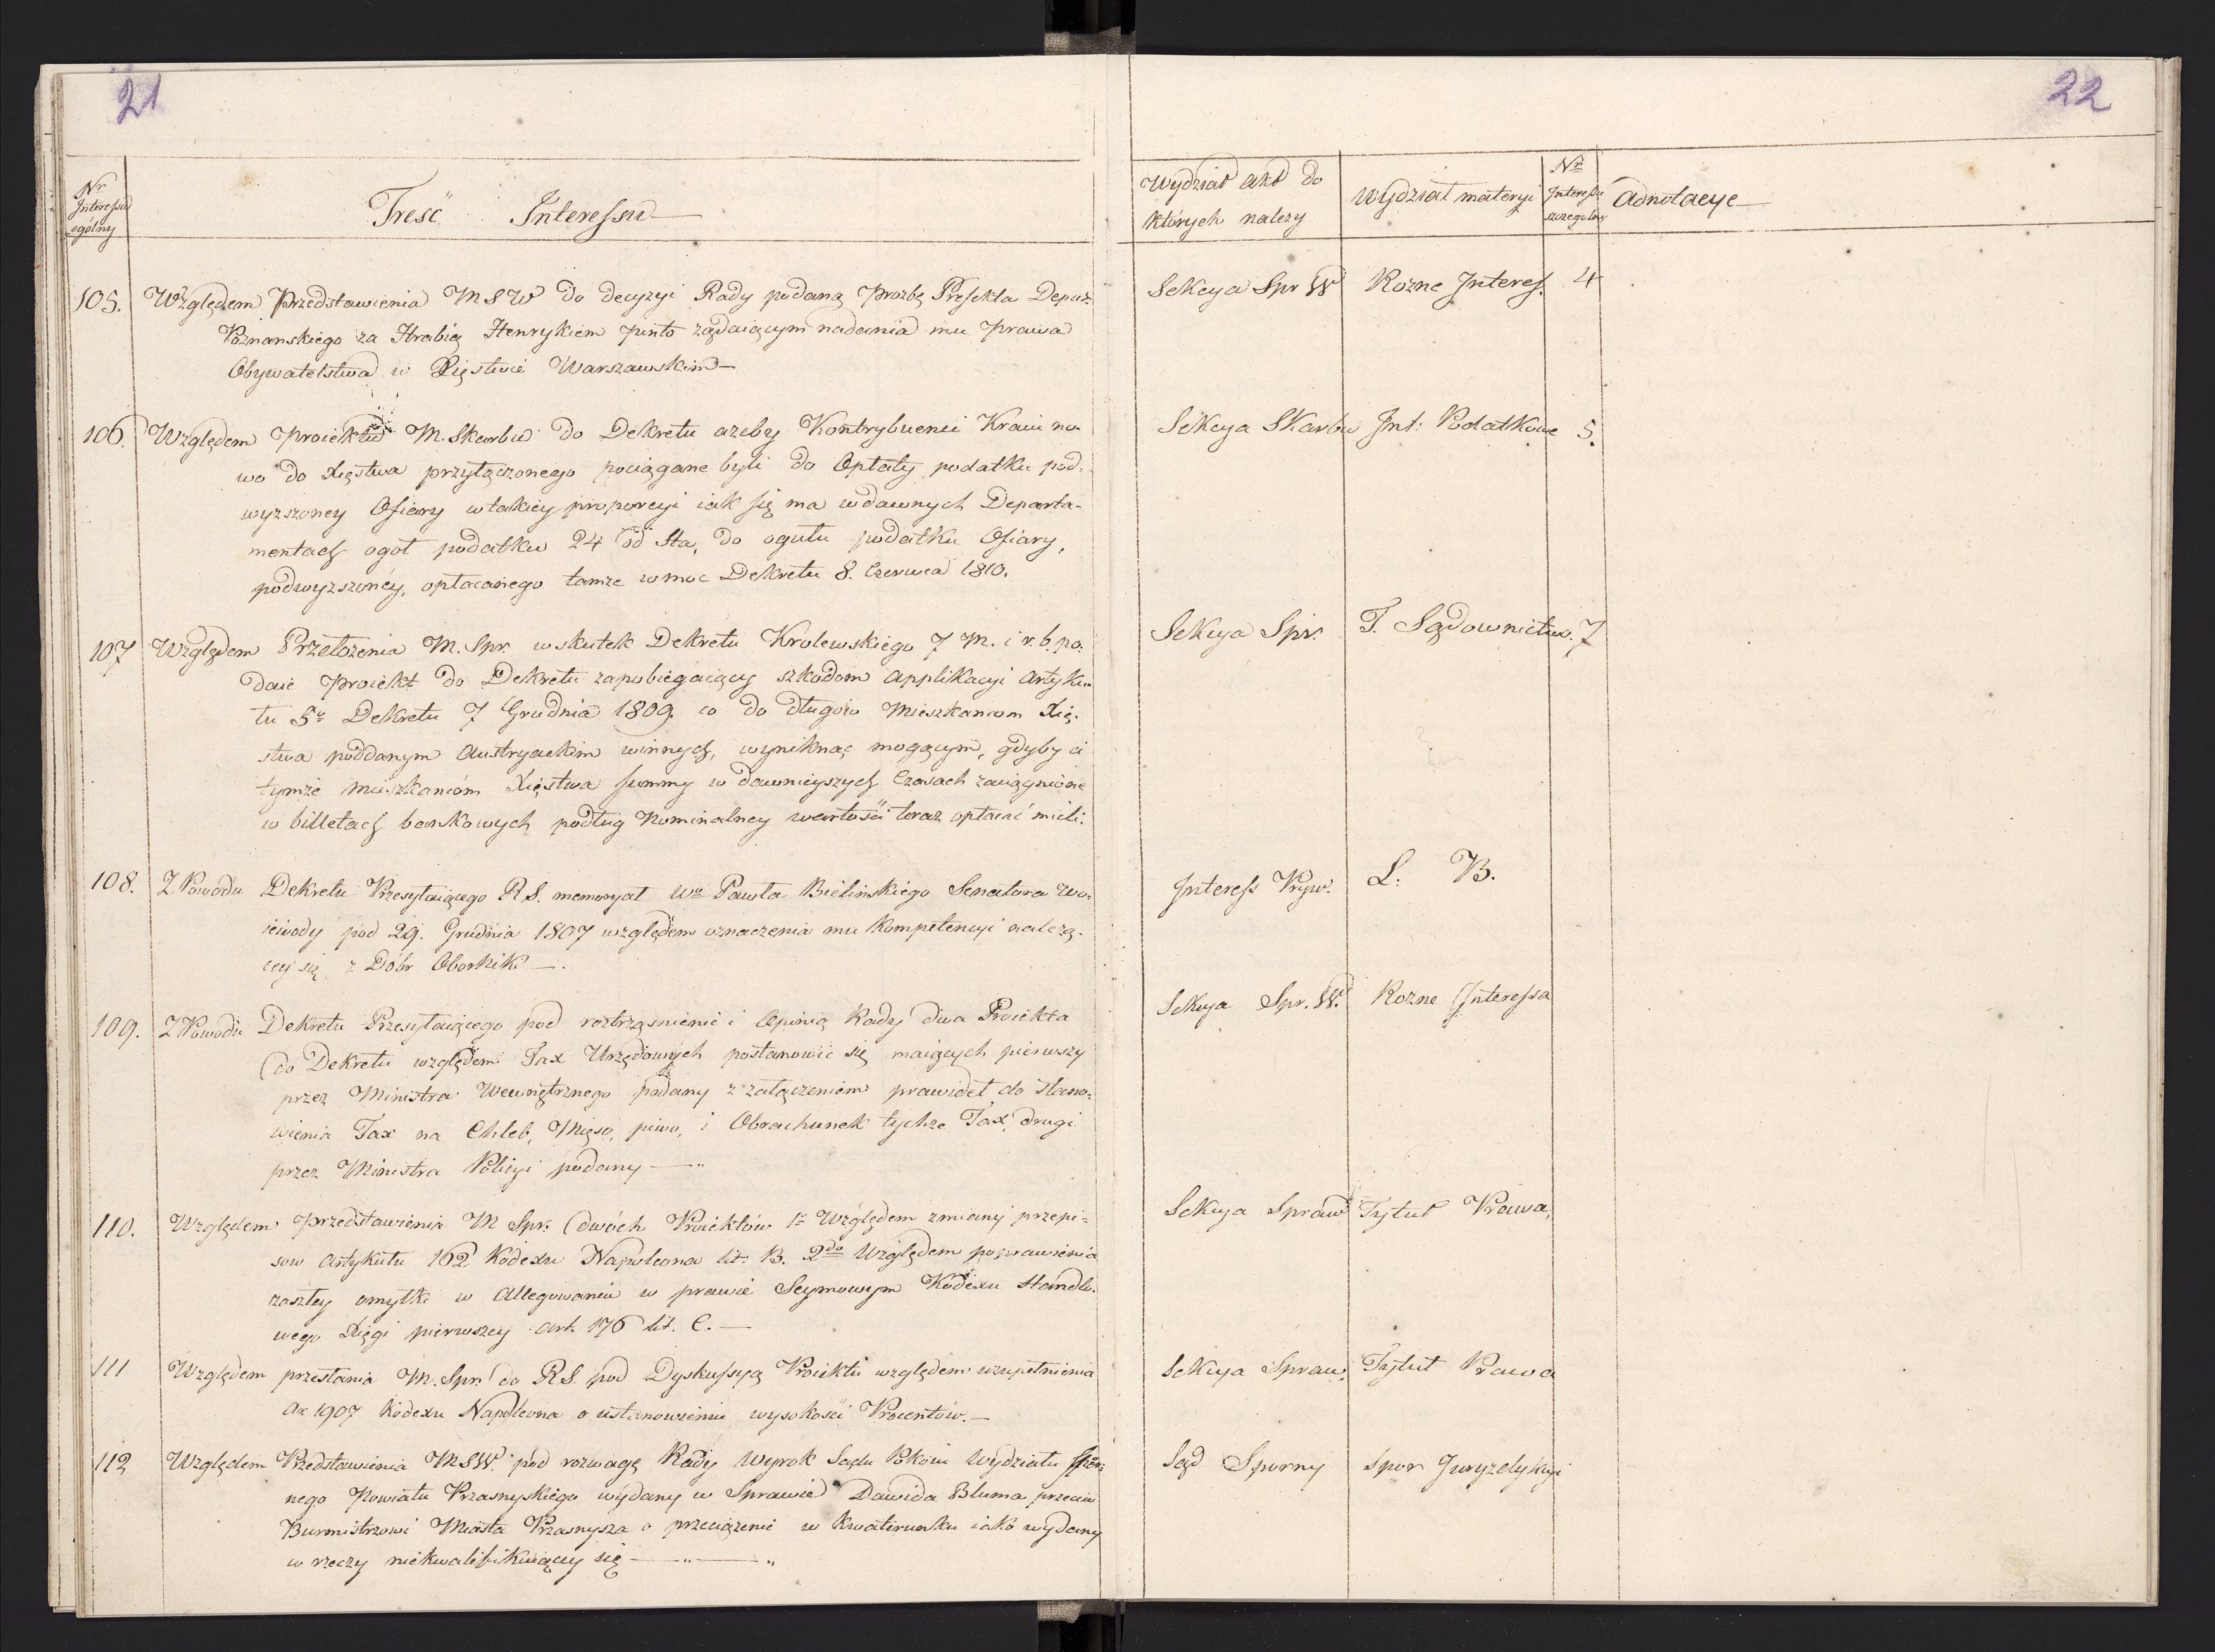 21
Nr
Interessu
ogólny
Treść Interessu
105. Względem Przedstawienia MSW do decyzyi Rady podaną prozbę Prefekta Depar:
Poznanskiego za Hrabią Henrykiem Pinto żądaiącym nadania mu prawa
Obywatelstwa w Xięstwie Warszawskim
106. Względem proiektu M. Skarbu do Dekretu azeby Kontrybuenci Kraiu no-
wo do Xięstwa przyłączonego pociągane byli do Opłaty podatku pod-
wyzszoney Ofiary w takiey proporcyi iak się ma w dawnych Departa-
mentach ogół podatku 24 od Sta, do ogułu podatku Ofiary,
podwyzszoney, opłacanego tamze w moc Dekretu 8. Czerwca 1810.
107 Względem Przełożenia M. Spr. w skutek Dekretu Krolewskiego 7 M. i r. b. po-
daie Proiekt do Dekretu zapobiegaiący szkodom applikacyi Artyku-
łu 5º Dekretu 7 Grudnia 1809. co do długów Mieszkancom Xię-
stwa poddanym Austryackim winnych, wyniknąć mogącym, gdyby ci
tymże mieszkańcom Xięstwa summy w dawnieyszych Czasach zaciągnione
w billetach bankowych podług Nominalney wartości teraz opłacać mieli.
108. Z Powodu Dekretu Przesyłaiącego R.S. memoryał Wo Pawła Bielinskiego Senatora Wo-
iewody pod 29. Grudnia 1807 względem oznaczenia mu Kompetencyi należą-
cey się z Dobr Obornik
109. Z Powodu Dekretu Przesyłaiącego pod roztrząsnienie i Opinią Rady dwa Proiekta
do Dekretu względem Tax Urzędowych postanowić się maiących pierwszy
przez Ministra Wewnętrznego podany z załączeniem prawideł do stano-
wienia Tax na Chleb, Mięso, piwo, i Obrachunek tychże Tax, drugi
przez Ministra Policyi podany
110. Względem przedstawienia M Spr. dwóch Proiektów 1º Względem zmiany przepi-
sow Artykułu 162 Kodexu Napoleona lit. B. 2do Względem poprawienia
zaszłey omyłki w Allegowaniu w prawie Seymowym Kodexu Handlo-
wego Xięgi pierwszey art. 176 lit. C.
111 Względem przesłania M. Spr. do R.S. pod Dyskussyą Proiektu względem uzupełnienia
Ar 1907 Kodexu Napoleona o ustanowieniu wysokości Procentów.
112 Względem Przedstawienia MSW. pod rozwagę Rady Wyrok Sądu Pokoiu Wydziału Spor-
nego Powiatu Przasnyskiego wydany w Sprawie Dawida Bluma przeciw
Burmistrzowi Miasta Przasnysza o przeciążenie w kwaterunku iako wydany
w rzeczy niekwalifikuiącey się
22
Wydział akt do
których nalezy
Wydział materyi
Nr
Interessu
szczegolny
Adnotacye
Sekcya Spr W Rozne Interes. 4
Sekcya Skarbu Int: Podatkowe 5.
Sekcya Spr. T. Sądownictw. 7
Interess Pryw. L. B.
Sekcya Spr. W. Rozne Interessa
Sekcya Spraw Tytuł Prawa,
Sekcya Spraw. Tytuł Prawa
Sąd Sporny Spor Juryzdykcyi